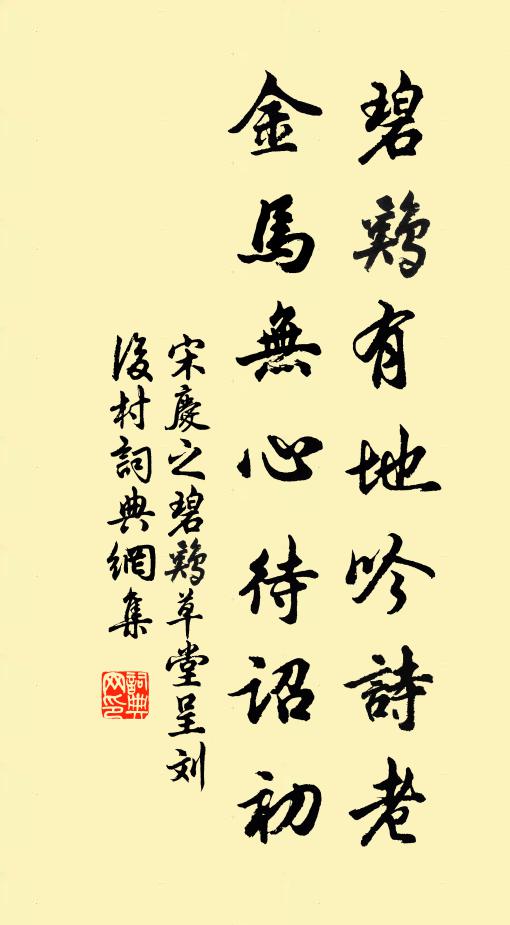 碧鷄有地吟詩老
金馬無心待詔初
宋慶之碧鷄草堂呈刘
後村詞典網集
詞典
网印